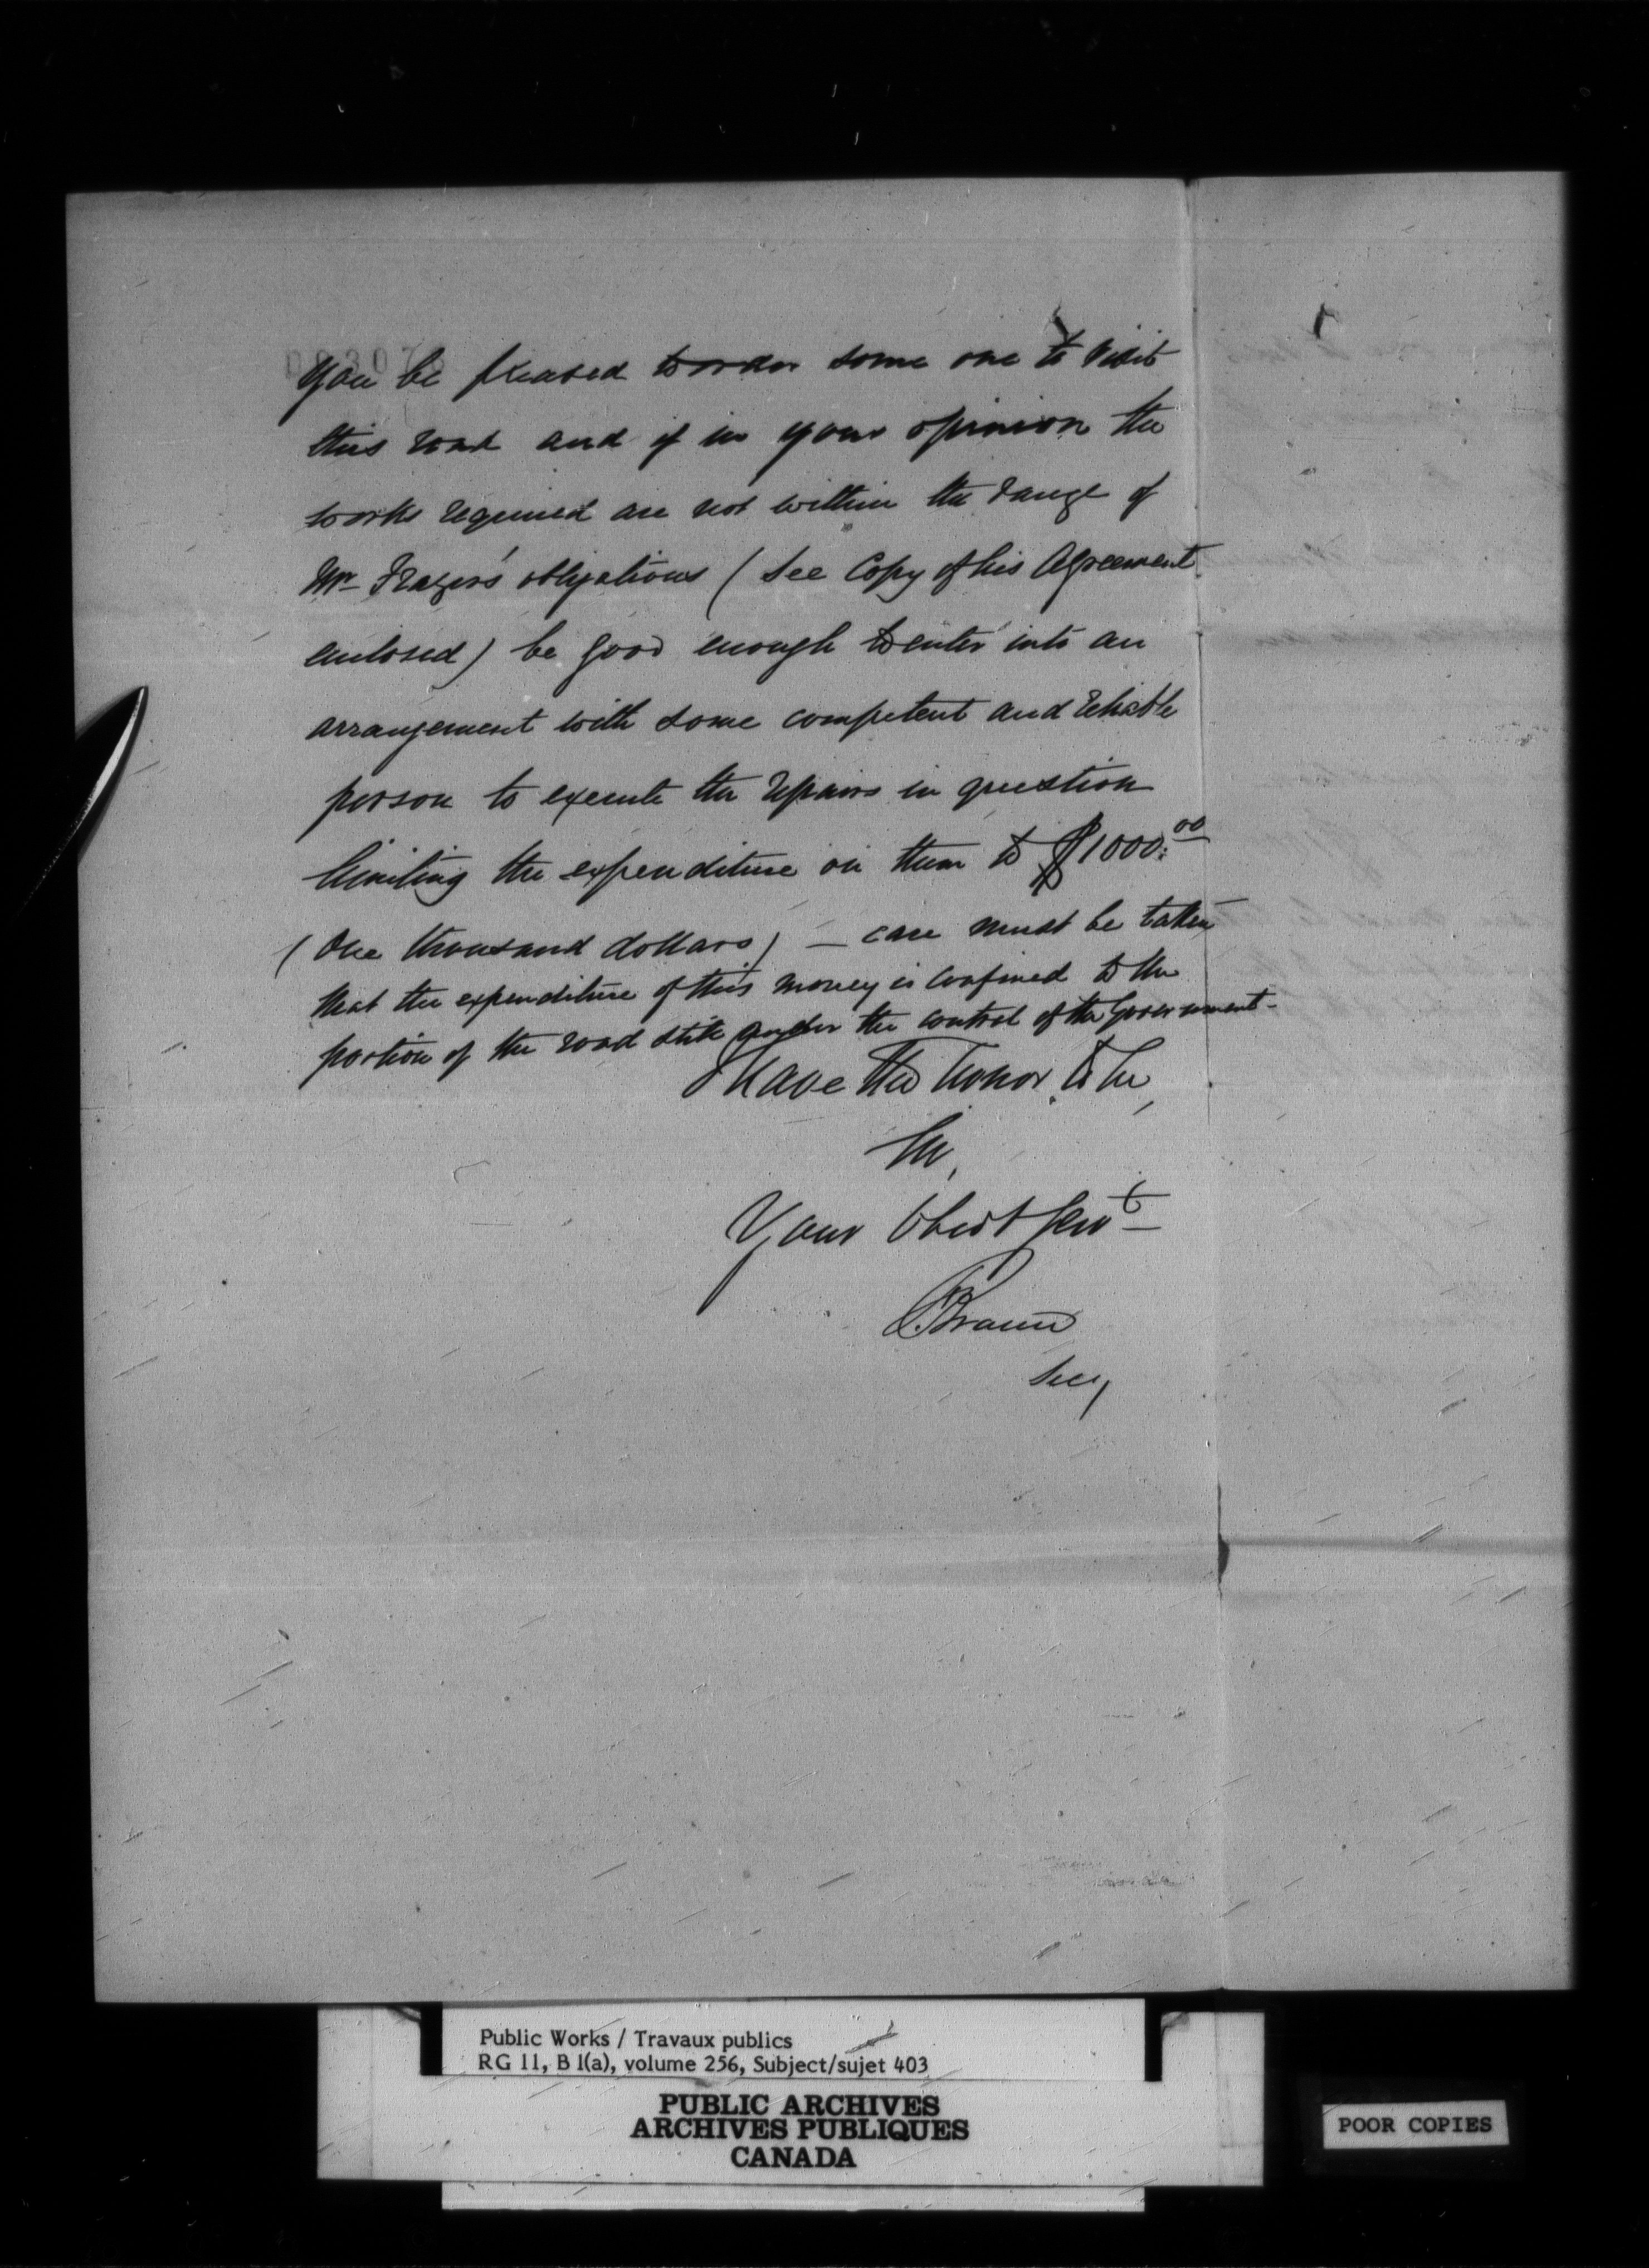 you be pleased to order some one to visit
this road and if in your opinion the
works required are not within the range of
Mr Frazer's obligations (see Copy of his Agreement
enclosed) be good enough to enter into an
arrangement with some competent and reliable
person to execute the repairs in question
limiting the expenditure on them to $1000.00
(One thousand dollars) — care must be taken
that the expenditure of this money is confined to the
portion of the road still under the control of the Government-
I have the honor to be,
Sir,
Your Obedt Servt
F. Braun
Secy
Public Works / Travaux publics
RG 11, B 1(a), volume 256, Subject/sujet 403
PUBLIC ARCHIVES
ARCHIVES PUBLIQUES
CANADA
POOR COPIES